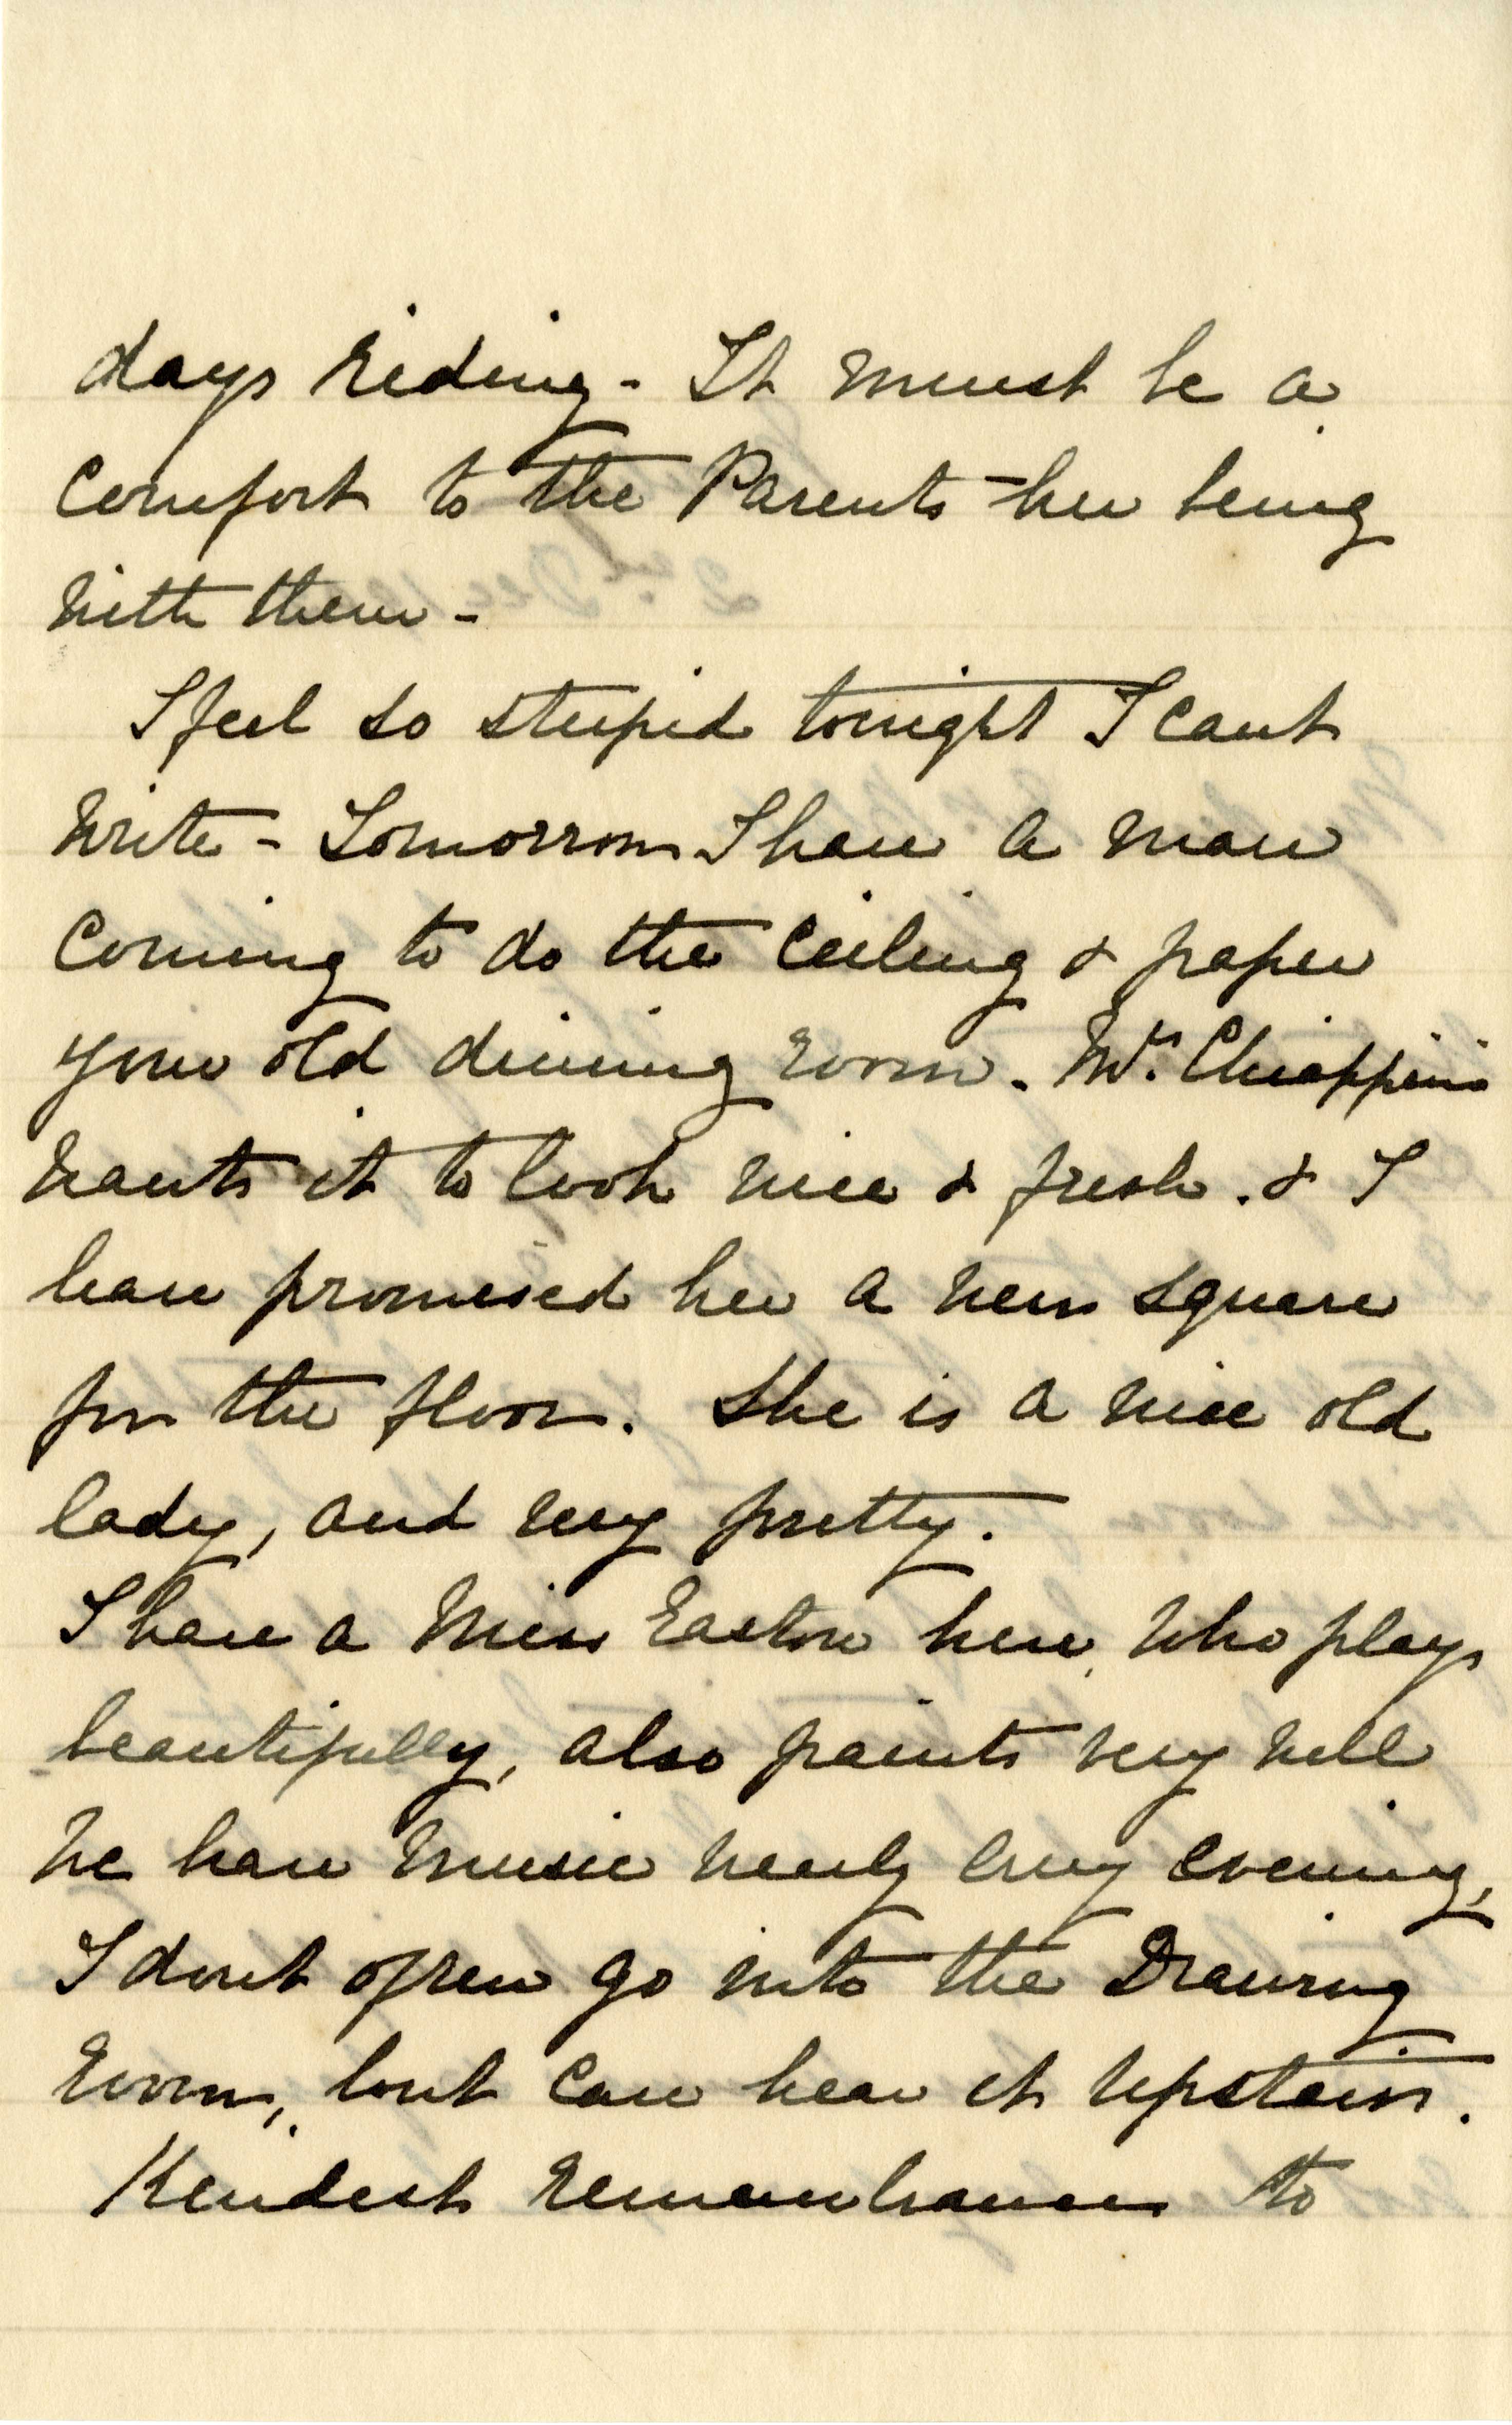 days riding - It must be a
comfort to the Parents - her being
with them -
I feel so stupid tonight I cant
write - Tomorrow I have a man
coming to do the ceiling & paper
your old dining room. Mrs. Chiappini
wants it to look nice & fresh. & I
have promised her a new square
for the floor. She is a nice old
lady, and very pretty.
I have a Miss Easton here, who plays
beautifully, also paints very well
we have music nearly every evening,
I dont often go into the Drawing
room, but can hear it upstairs.
Kindest remembrances to